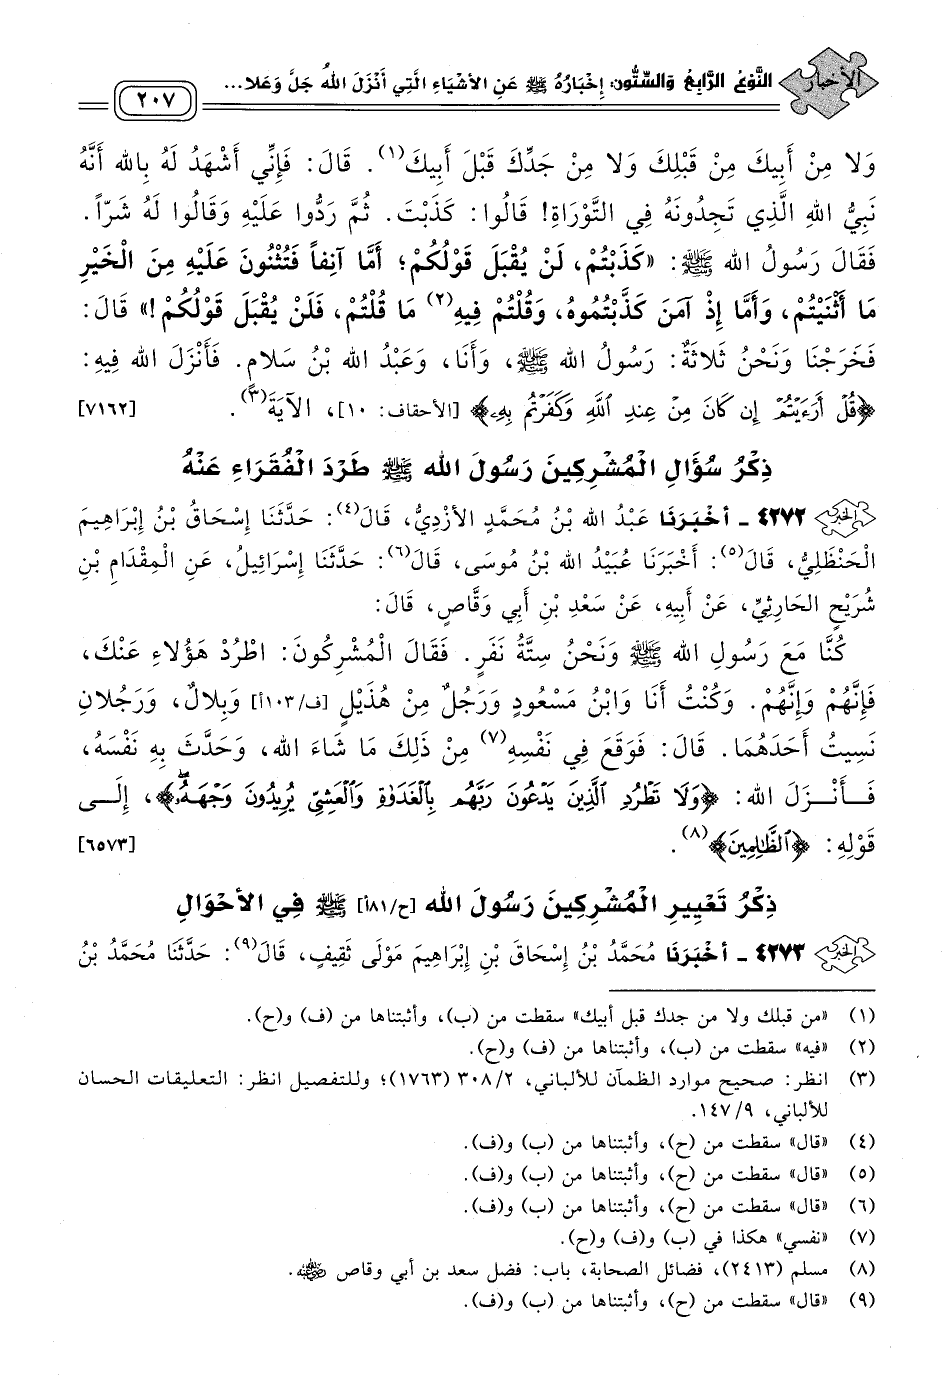 الأخبار
النَّوْعُ الرَّابِعُ وَالسِّتُّونَ: إِخْبَارُهُ ﷺ عَنِ الأَشْيَاءِ الَّتِي أَنْزَلَ اللهُ جَلَّ وَعَلا...
٢٠٧
وَلا مِنْ أَبِيكَ مِنْ قَبْلِكَ وَلا مِنْ جَدِّكَ قَبْلَ أَبِيكَ(١). قَالَ: فَإِنِّي أَشْهَدُ لَهُ بِالله أَنَّهُ
نَبِيُّ اللهِ الَّذِي تَجِدُونَهُ فِي التَّوْرَاةِ! قَالُوا: كَذَبْتَ. ثُمَّ رَدُّوا عَلَيْهِ وَقَالُوا لَهُ شَرّاً.
فَقَالَ رَسُولُ الله ﷺ: «كَذَبْتُمْ، لَنْ يُقْبَلَ قَوْلُكُمْ؛ أَمَّا آنِفاً فَتُثْنُونَ عَلَيْهِ مِنَ الْخَيْرِ
مَا أَثْنَيْتُمْ، وَأَمَّا إِذْ آمَنَ كَذَّبْتُمُوهُ، وَقُلْتُمْ فِيهِ(٢) مَا قُلْتُمْ، فَلَنْ يُقْبَلَ قَوْلُكُمْ!» قَالَ:
فَخَرَجْنَا وَنَحْنُ ثَلاثَةٌ: رَسُولُ الله ﷺ، وَأَنَا، وَعَبْدُ الله بْنُ سَلامٍ. فَأَنْزَلَ الله فِيهِ:
﴿قُلْ أَرَءَيْتُمْ إِن كَانَ مِنْ عِندِ ٱللَّهِ وَكَفَرْتُم بِهِۦ﴾ [الأحقاف: ١٠]، الآيَةَ(٣). [٧١٦٢]
ذِكْرُ سُؤَالِ الْمُشْرِكِينَ رَسُولَ الله ﷺ طَرْدَ الْفُقَرَاءِ عَنْهُ
الخبر ٤٢٧٢ - أَخْبَرَنَا عَبْدُ الله بْنُ مُحَمَّدٍ الأَزْدِيُّ، قَالَ(٤): حَدَّثَنَا إِسْحَاقُ بْنُ إِبْرَاهِيمَ
الْحَنْظَلِيُّ، قَالَ(٥): أَخْبَرَنَا عُبَيْدُ الله بْنُ مُوسَى، قَالَ(٦): حَدَّثَنَا إِسْرَائِيلُ، عَنِ الْمِقْدَامِ بْنِ
شُرَيْحٍ الحَارِثِيِّ، عَنْ أَبِيهِ، عَنْ سَعْدِ بْنِ أَبِي وَقَّاصٍ، قَالَ:
كُنَّا مَعَ رَسُولِ الله ﷺ وَنَحْنُ سِتَّةُ نَفَرٍ. فَقَالَ الْمُشْرِكُونَ: اطْرُدْ هَؤُلاءِ عَنْكَ،
فَإِنَّهُمْ وَإِنَّهُمْ. وَكُنْتُ أَنَا وَابْنُ مَسْعُودٍ وَرَجُلٌ مِنْ هُذَيْلٍ [ف/١٠٣أ] وَبِلالٌ، وَرَجُلانِ
نَسِيتُ أَحَدَهُمَا. قَالَ: فَوَقَعَ فِي نَفْسِهِ(٧) مِنْ ذَلِكَ مَا شَاءَ الله، وَحَدَّثَ بِهِ نَفْسَهُ،
فَـأَنْـزَلَ الله: ﴿وَلَا تَطْرُدِ ٱلَّذِينَ يَدْعُونَ رَبَّهُم بِٱلْغَدَوٰةِ وَٱلْعَشِىِّ يُرِيدُونَ وَجْهَهُۥ﴾، إِلَـى
قَوْلِهِ: ﴿ٱلظَّٰلِمِينَ﴾(٨). [٦٥٧٣]
ذِكْرُ تَعْيِيرِ الْمُشْرِكِينَ رَسُولَ الله [ح/٨١أ] ﷺ فِي الأَحْوَالِ
الخبر ٤٢٧٣ - أَخْبَرَنَا مُحَمَّدُ بْنُ إِسْحَاقَ بْنِ إِبْرَاهِيمَ مَوْلَى ثَقِيفٍ، قَالَ(٩): حَدَّثَنَا مُحَمَّدُ بْنُ
(١) «من قبلك ولا من جدك قبل أبيك» سقطت من (ب)، وأثبتناها من (ف) و(ح).
(٢) «فيه» سقطت من (ب)، وأثبتناها من (ف) و(ح).
(٣) انظر: صحيح موارد الظمآن للألباني، ٣٠٨/٢ (١٧٦٣)؛ وللتفصيل انظر: التعليقات الحسان
للألباني، ١٤٧/٩.
(٤) «قال» سقطت من (ح)، وأثبتناها من (ب) و(ف).
(٥) «قال» سقطت من (ح)، وأثبتناها من (ب) و(ف).
(٦) «قال» سقطت من (ح)، وأثبتناها من (ب) و(ف).
(٧) «نفسي» هكذا في (ب) و(ف) و(ح).
(٨) مسلم (٢٤١٣)، فضائل الصحابة، باب: فضل سعد بن أبي وقاص رضي الله عنه.
(٩) «قال» سقطت من (ح)، وأثبتناها من (ب) و(ف).